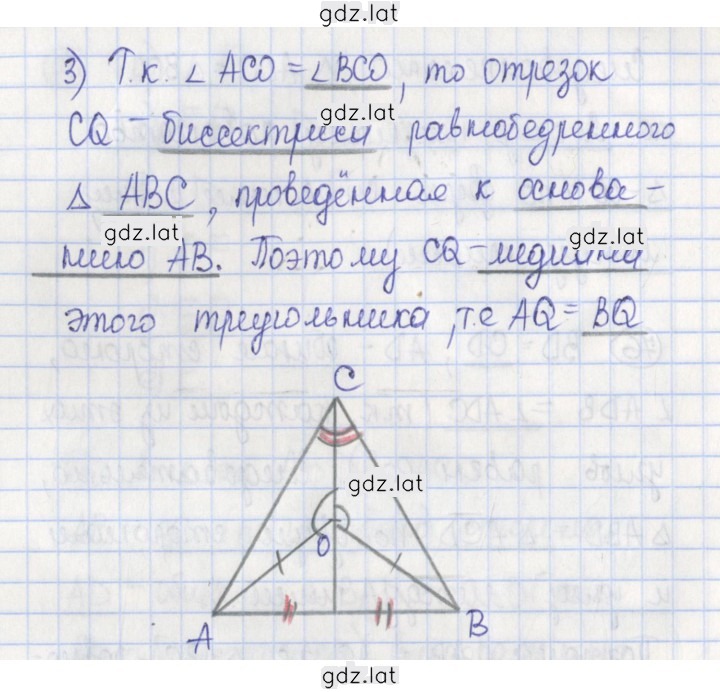 gdz.lat
3) Т.к. ∠ ACO = ∠BCO, то отрезок
gdz.lat
CQ - биссектриса равнобедренного
△ ABC, проведённая к основа-
gdz.lat
gdz.lat
нию AB. Поэтому CQ - медиана
этого треугольника, т.е AQ = BQ
C
gdz.lat
O
A
B
gdz.lat